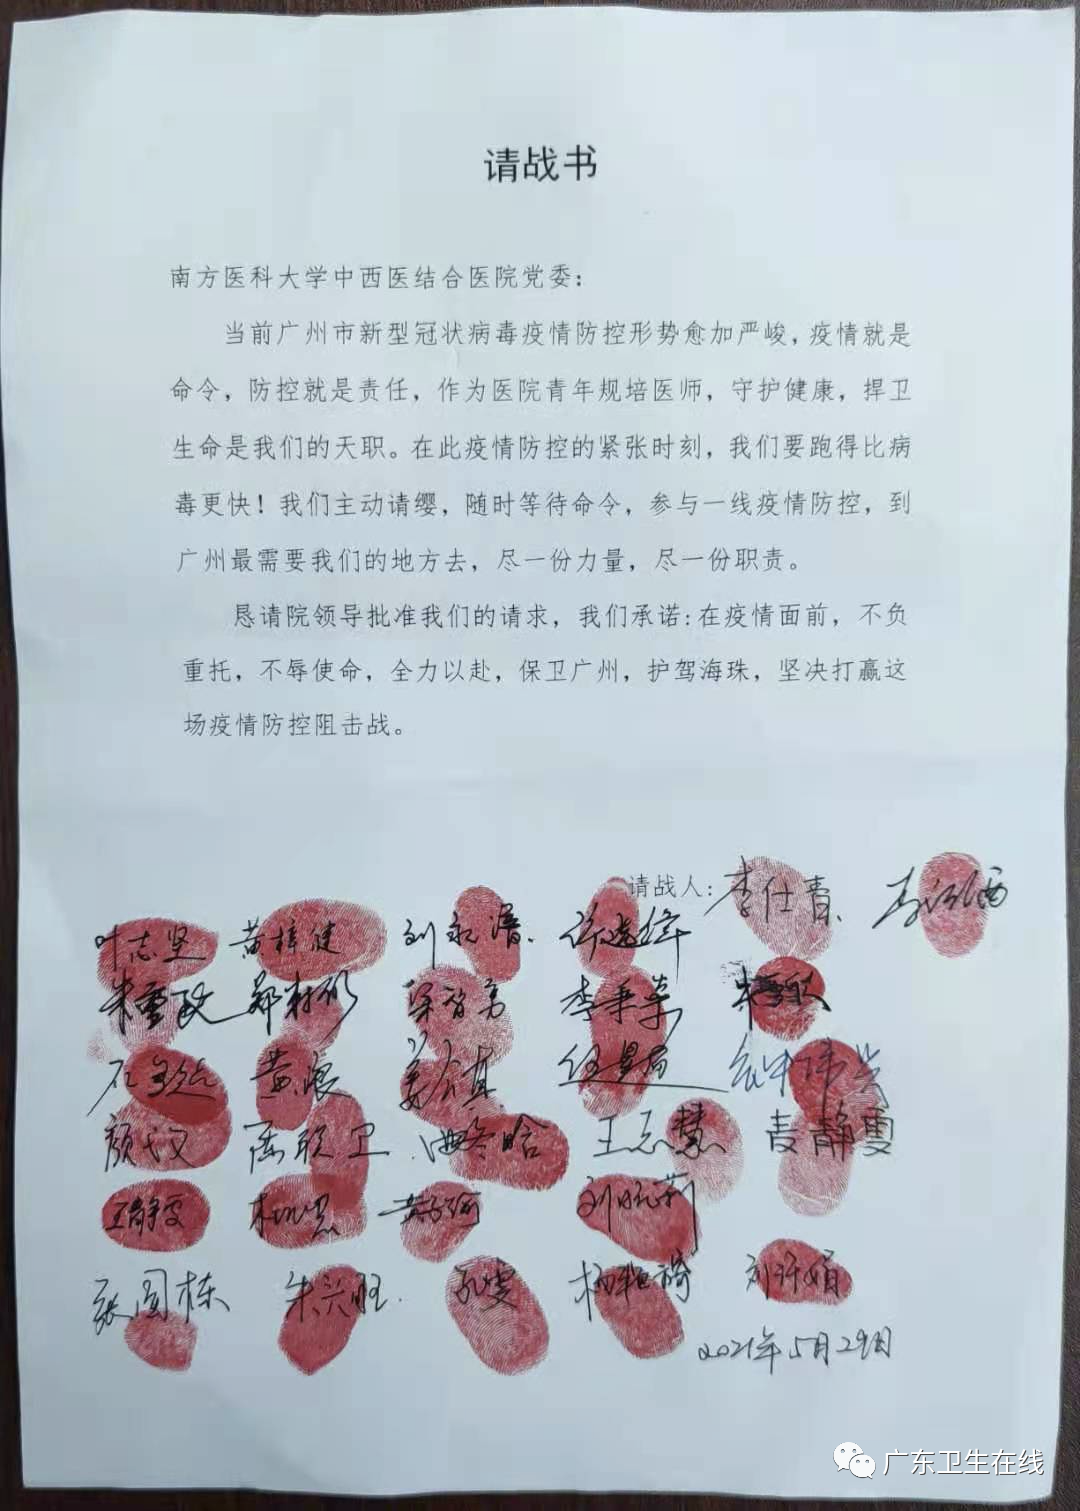 请战书
南方医科大学中西医结合医院党委：
当前广州市新型冠状病毒疫情防控形势愈加严峻，疫情就是
命令，防控就是责任，作为医院青年规培医师，守护健康，捍卫
生命是我们的天职。在此疫情防控的紧张时刻，我们要跑得比病
毒更快！我们主动请缨，随时等待命令，参与一线疫情防控，到
广州最需要我们的地方去，尽一份力量，尽一份职责。
恳请院领导批准我们的请求，我们承诺:在疫情面前，不负
重托，不辱使命，全力以赴，保卫广州，护驾海珠，坚决打赢这
场疫情防控阻击战。
请战人: 李仕青
叶志坚 黄梓健
李秉
黄浪
陈联卫 王志慧 麦静雯
张国栋 朱兴旺 孔雯 刘许娟
2021年5月29日
广东卫生在线